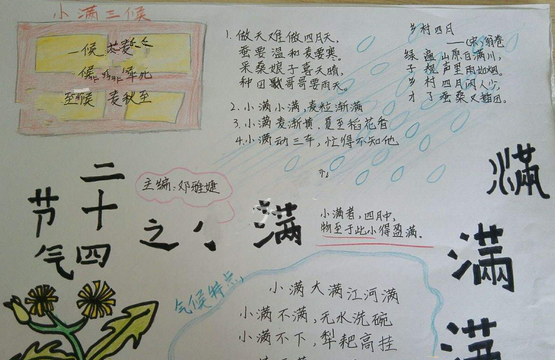 小满三候
一候 苦菜
至候 麦秋至
1. 做天难做四月天,
蚕要温和麦要寒。
采桑娘子喜天晴,
种田哥哥要雨天。
2. 小满小满,麦粒渐满
3. 小满麦渐黄,夏至稻花香
4. 小满动三车,忙得不知他
乡村四月
宋 翁卷
绿遍山原白满川,
子规声里雨如烟。
乡村四月闲人少,
才了蚕桑又插田。
主编:邓雅婕
二十四
节气
之小满
小满者,四月中,
物至于此小得盈满。
满
满
满
气候特点,
小满大满江河满
小满不满,无水洗碗
小满不下,犁耙高挂